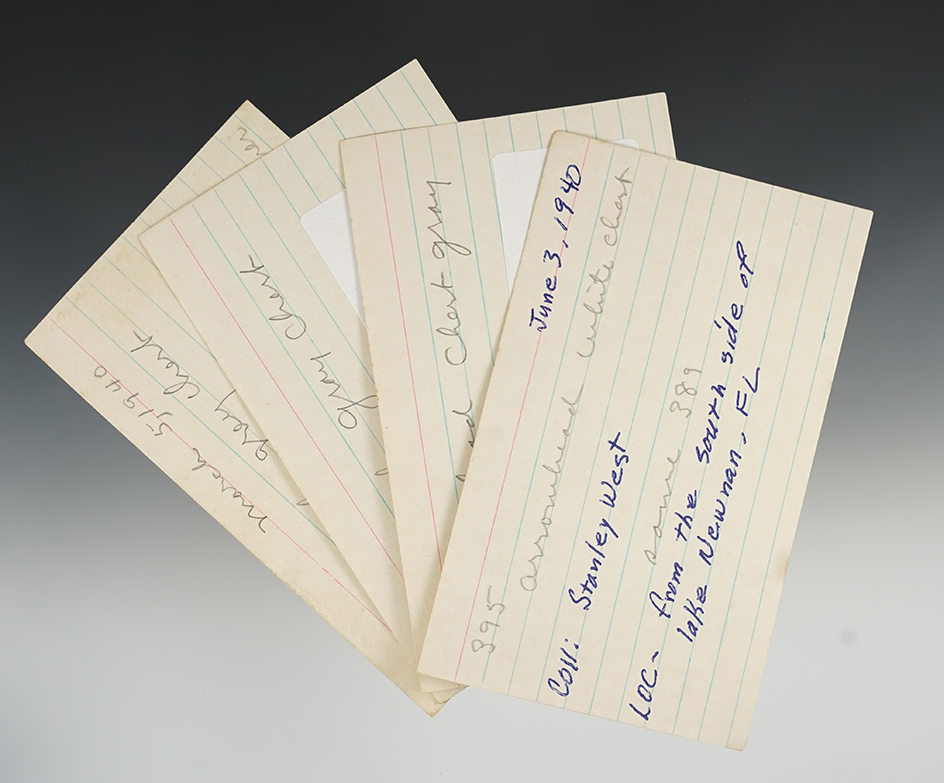 March 5, 1940
grey chert
gray chert
chert gray
June 3, 1940
395 arrowhead white chert
Coll: Stanley West
same 389
LOC- from the south side of
lake Newnan, FL